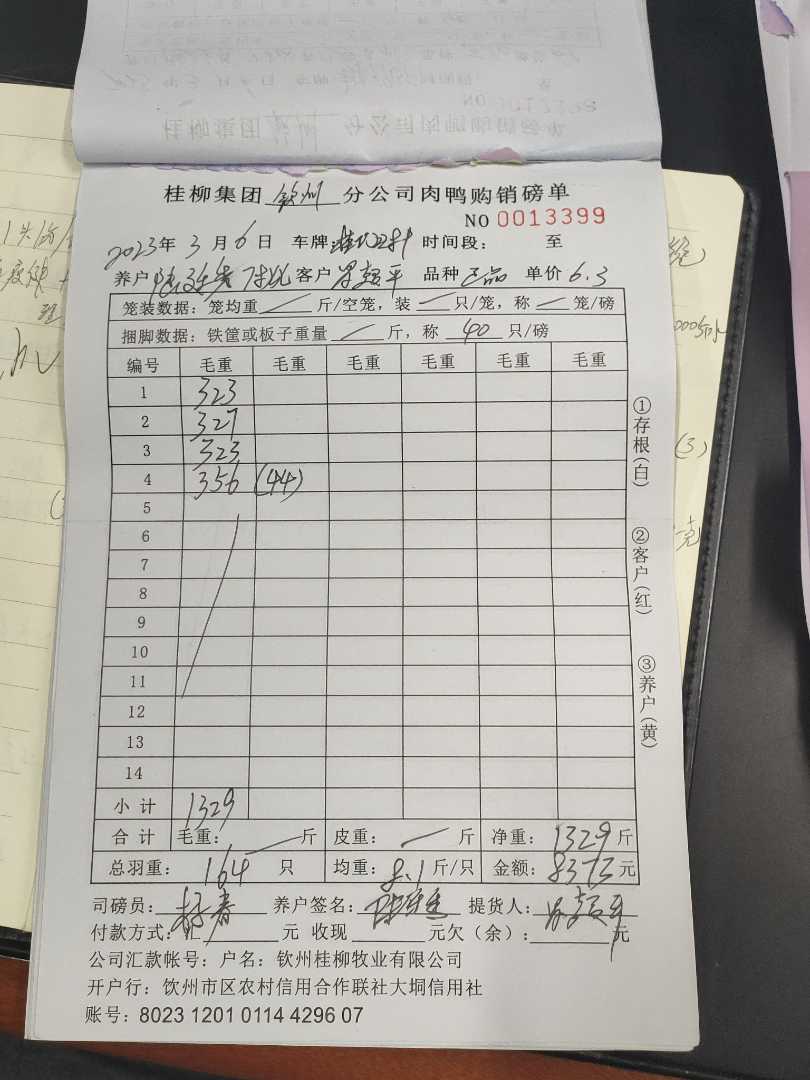 桂柳集团 钦州 分公司肉鸭购销磅单
NO 0013399
2023年 3月 6日 车牌: 时间段: 至
养户 客户 品种 正品 单价 6.3
笼装数据:笼均重 斤/空笼,装 只/笼,称 笼/磅
捆脚数据:铁筐或板子重量 斤,称 40 只/磅
编号 毛重 毛重 毛重 毛重 毛重 毛重
1 323
2 327
3 323
4 356 (44)
5
6
7
8
9
10
11
12
13
14
小计 1329
合计 毛重: 斤 皮重: 斤 净重: 1329 斤
总羽重: 164 只 均重: 8.1 斤/只 金额: 8373 元
司磅员: 养户签名: 提货人:
付款方式:汇 元 收现 元欠(余): 元
公司汇款帐号:户名:钦州桂柳牧业有限公司
开户行:饮州市区农村信用合作联社大垌信用社
账号:8023 1201 0114 4296 07
①存根(白)
②客户(红)
③养户(黄)